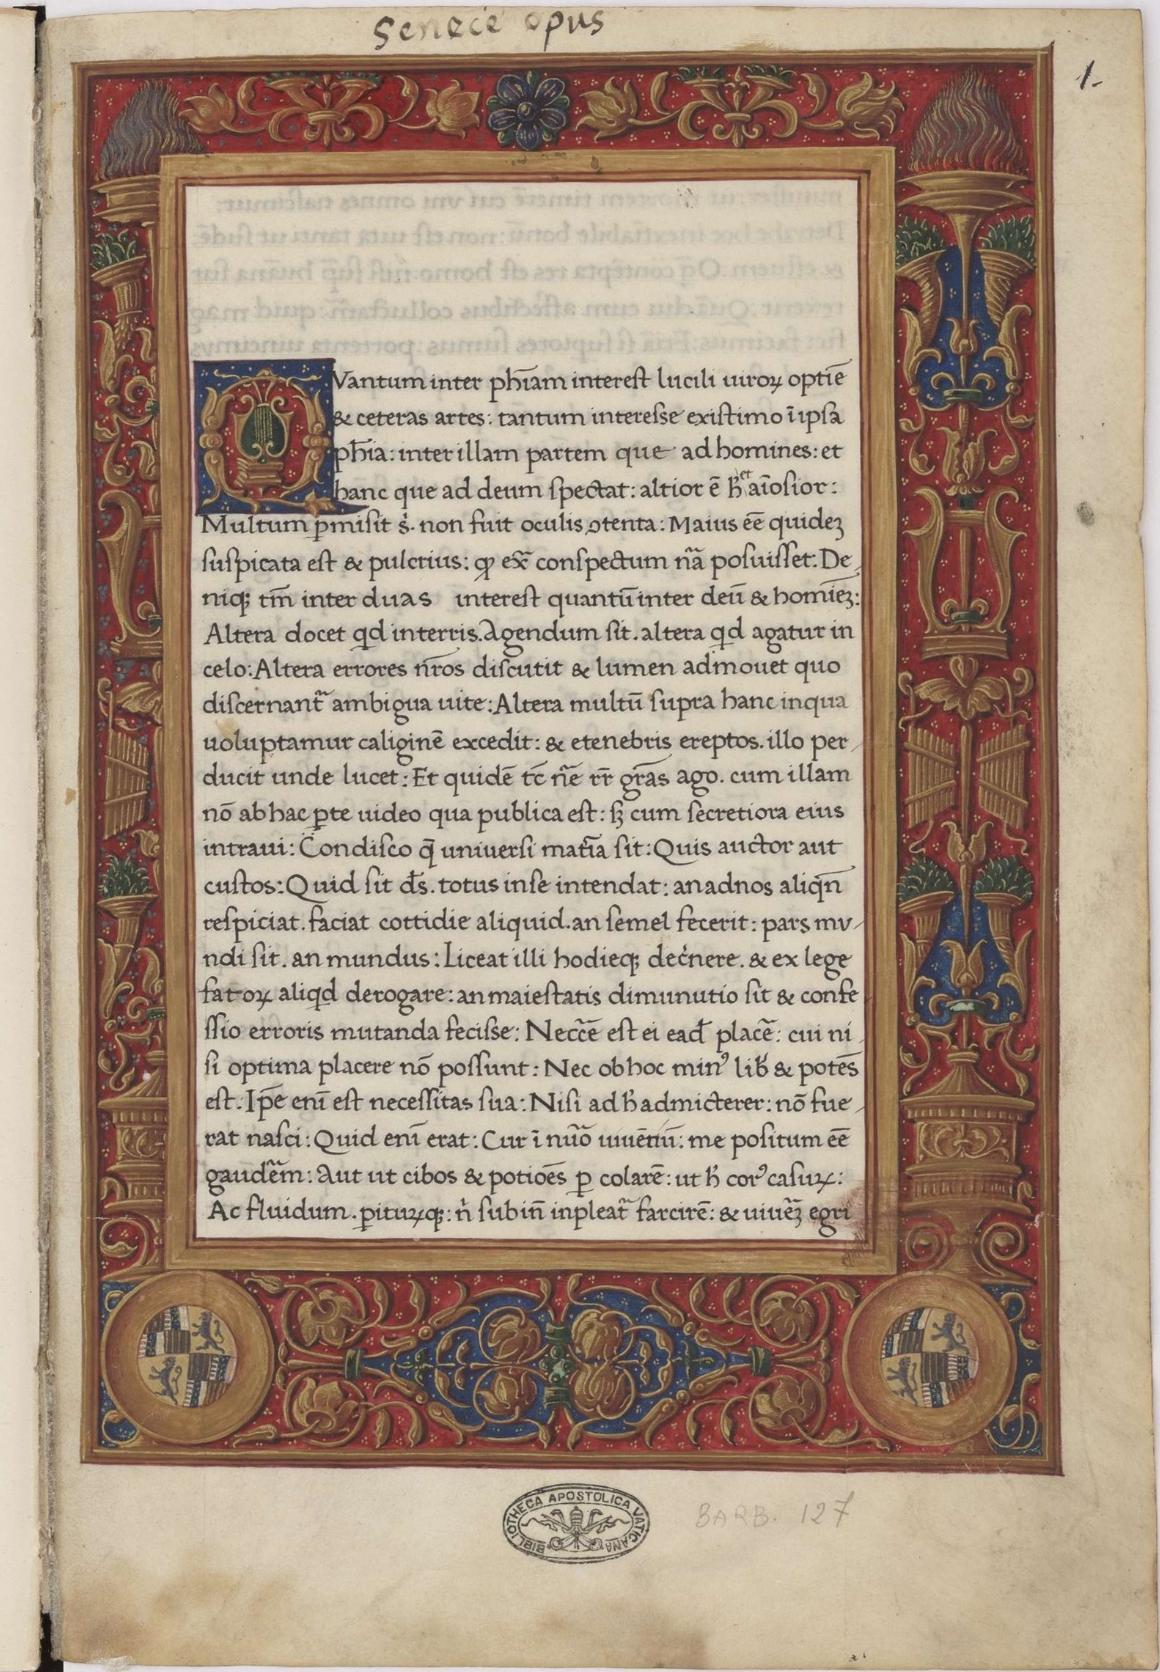 Senece opus
1.
QVantum inter phīam interest lucili uiroꝝ optīe
& ceteras artes: tantum interesse existimo ī ipsa
phīa: inter illam partem que ad homines: et
hanc que ad deum spectat: altior ē h̄ et aīosior:
Multum ꝑmisit s. non fuit oculis ꝯtenta: Maius eē quideꝫ
suspicata est & pulcrius: qͥ ex̄ conspectum nā̄ posuisset: De
niqꝫ tm̄ inter duas interest quantū inter deū & homīeꝫ:
Altera docet qd in terris. Agendum sit. altera qd agatur in
celo: Altera errores nr̄os discutit & lumen admouet quo
discernant᷑ ambigua uite: Altera multū supra hanc in qua
uoluptamur caliginē excedit: & e tenebris ereptos. illo per
ducit unde lucet: Et quidē tc̄ nē rr̄ gr̄as ago. cum illam
nō ab hac ꝑte uideo qua publica est: sꝫ cum secretiora eius
intraui: Condisco q̄ uniuersi mat̄ia sit: Quis auctor aut
custos: Quid sit ds̄. totus in se intendat: an ad nos aliqn̄
respiciat. faciat cottidie aliquid. an semel fecerit: pars mu
ndi sit. an mundus: Liceat illi hodieqꝫ dec̄nere. & ex lege
fatoꝝ aliqd derogare: an maiestatis dimunutio sit & confe
ssio erroris mutanda fecisse: Necc̄e est ei ead̄ placē: cui ni
si optima placere nō possunt: Nec ob hoc minꝰ lib̄ & potēs
est: Ip̄e enī est necessitas sua: Nisi ad h̄ admicterer: nō fue
rat nasci: Quid enī erat: Cur ī nūo uiuētiū: me positum eē
gaudēam: Aut ut cibos & potiōes ꝑ colarē: ut h̄ corꝰ casuꝝ:
Ac fluidum. ꝑituꝝqꝫ: n̄ subin̄ inpleat᷑ farcirē: & uiuēꝫ egri
BIBLIOTHECA APOSTOLICA VATICANA
BARB. 127